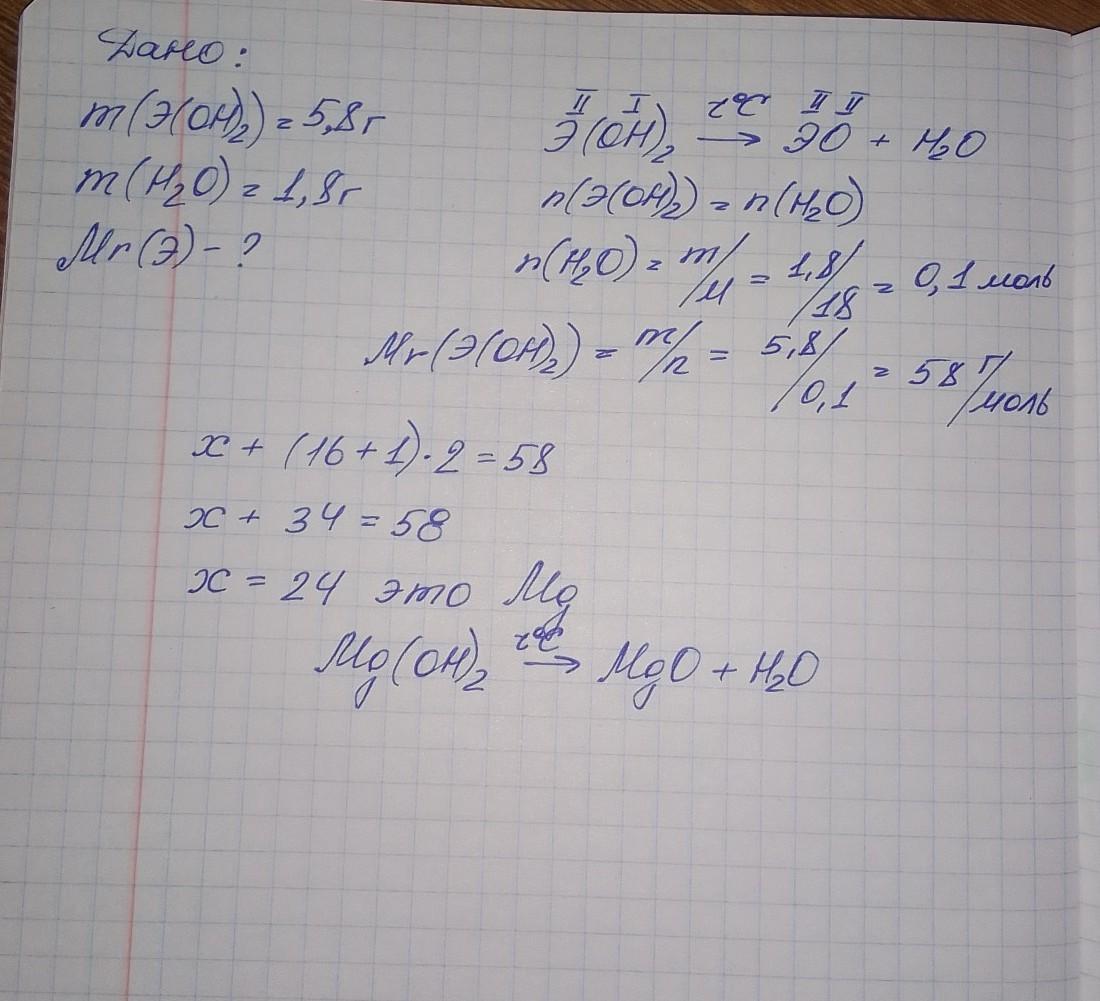 Дано:
m(Э(OH)₂) = 5,8г
m(H₂O) = 1,8г
Mr(Э) - ?
II I t°C II II
Э(OH)₂ → ЭO + H₂O
n(Э(OH)₂) = n(H₂O)
n(H₂O) = m/M = 1,8/18 = 0,1 моль
Mr(Э(OH)₂) = m/n = 5,8/0,1 = 58 г/моль
x + (16 + 1)·2 = 58
x + 34 = 58
x = 24 это Mg
t°C
Mg(OH)₂ → MgO + H₂O